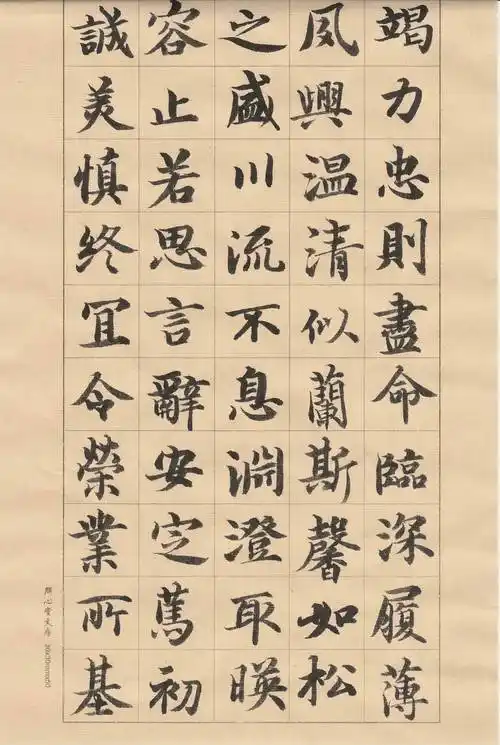 竭力忠則盡命臨深履薄
夙興温清似蘭斯馨如松
之盛川流不息淵澄取暎
容止若思言辭安定篤初
誠美慎終冝令榮業所基